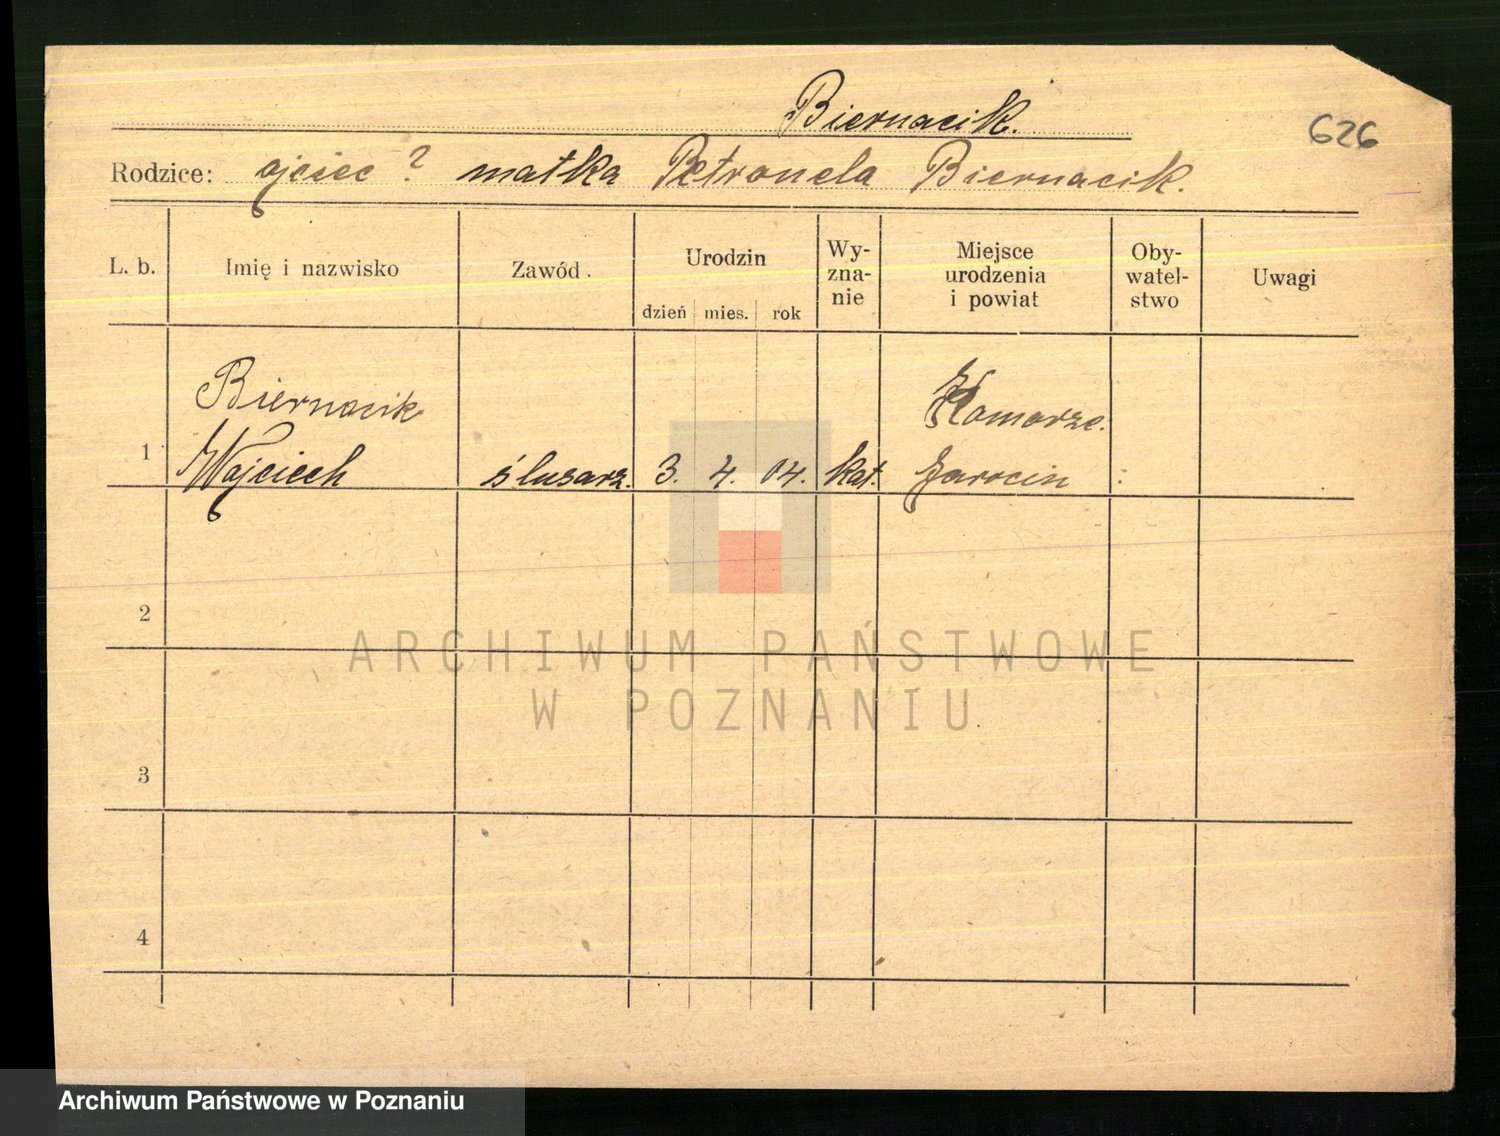 Biernacik.
626
Rodzice: ojciec ? matka Petronela Biernacik.
L. b. Imię i nazwisko Zawód. Urodzin dzień mies. rok Wy-zna-nie Miejsce urodzenia i powiat Oby-watel-stwo Uwagi
Biernacik Komorze.
1 Wojciech ślusarz. 3. 4. 04. kat. Jarocin
2
3
4
ARCHIWUM PAŃSTWOWE
W POZNANIU
Archiwum Państwowe w Poznaniu